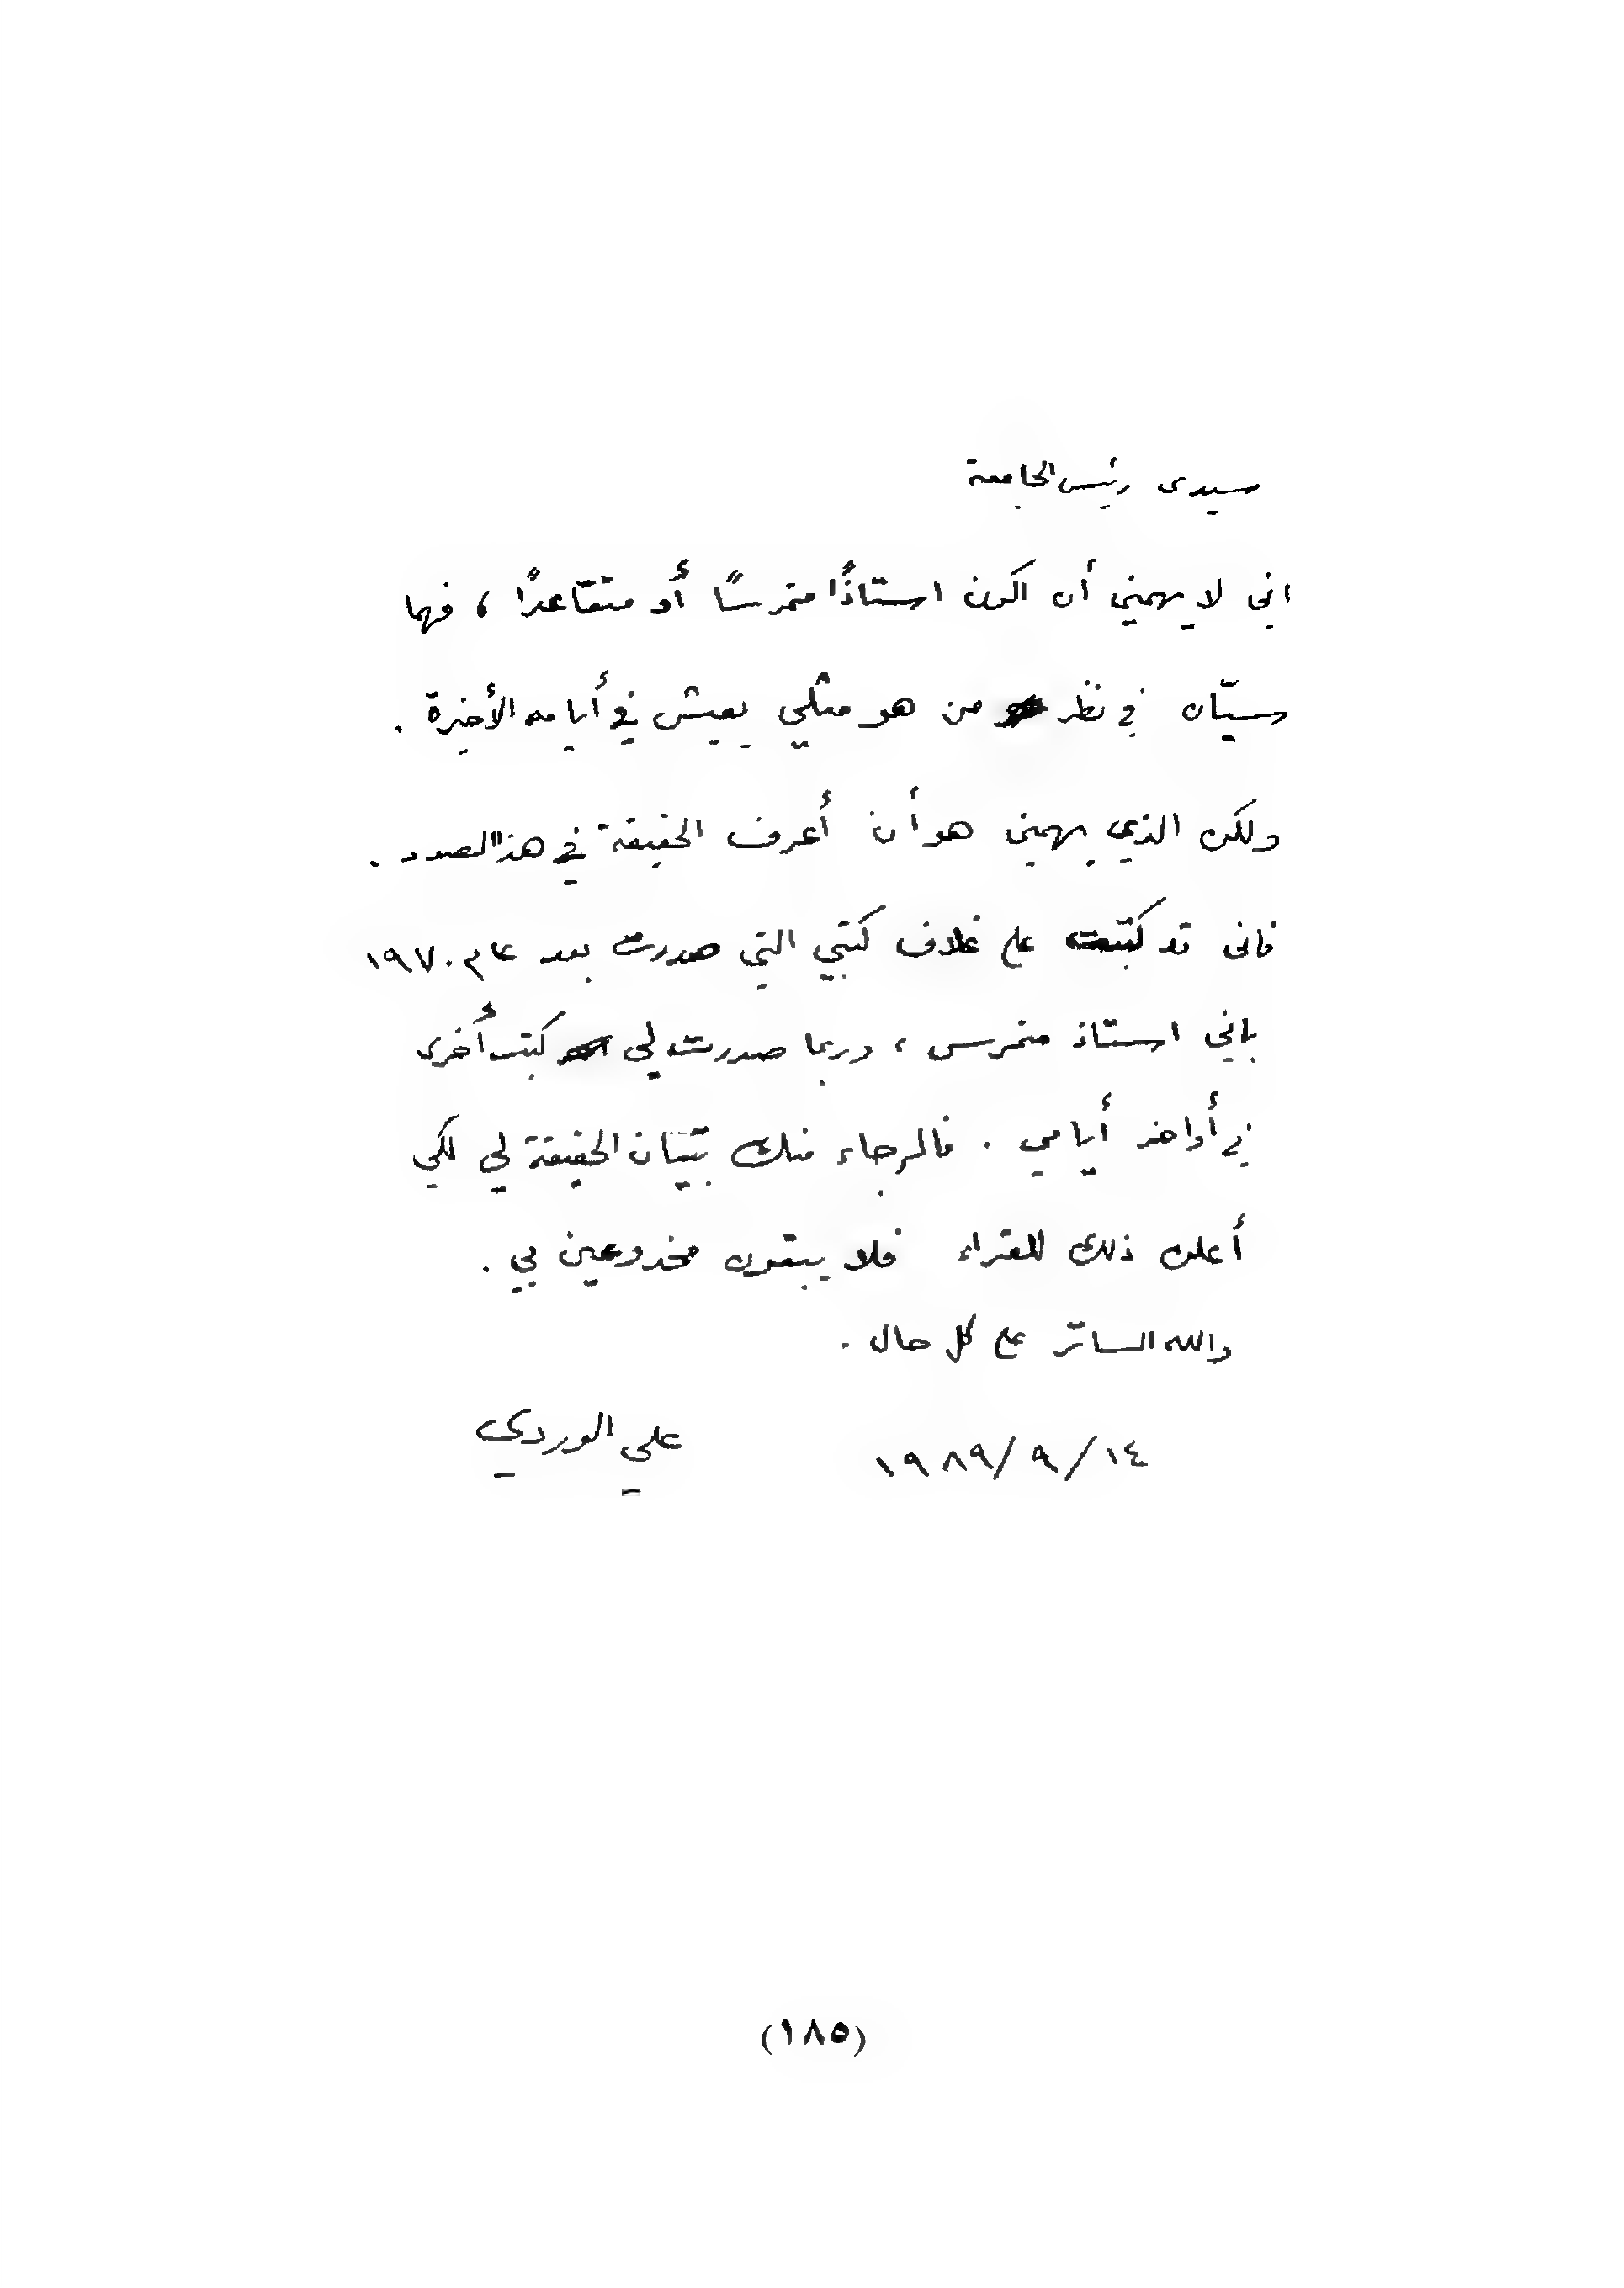 سيدى رئيس الجامعة
انى لا يهمني أن اكون استاذًا متمرسًا أو متقاعدًا ، فهما
سيّان في نظر من هو مثلي يعيش في أيامه الأخيرة .
ولكن الذي يهمنى هو أن أعرف الحقيقة في هذا الصدد .
فانى قد كتبت على غلاف كتبي التي صدرت بعد عام ١٩٧٠
باني استاذ متمرس ، وربما صدرت لي كتب أخرى
في أواخر أيامي . فالرجاء منك تبيان الحقيقة لي لكي
أعلن ذلك للقراء فلا يبقون مخدوعين بي .
والله الساتر على كل حال .
١٤/ ٩ /١٩٨٩ علي الوردي
(١٨٥)